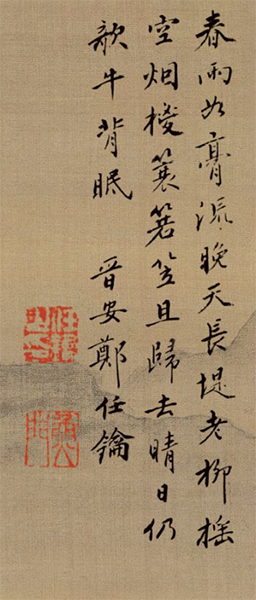 春雨如膏晚天長堤老柳搖
空烟蓑箬笠且歸去晴日仍
欹牛背眠 晉安鄭任鑰